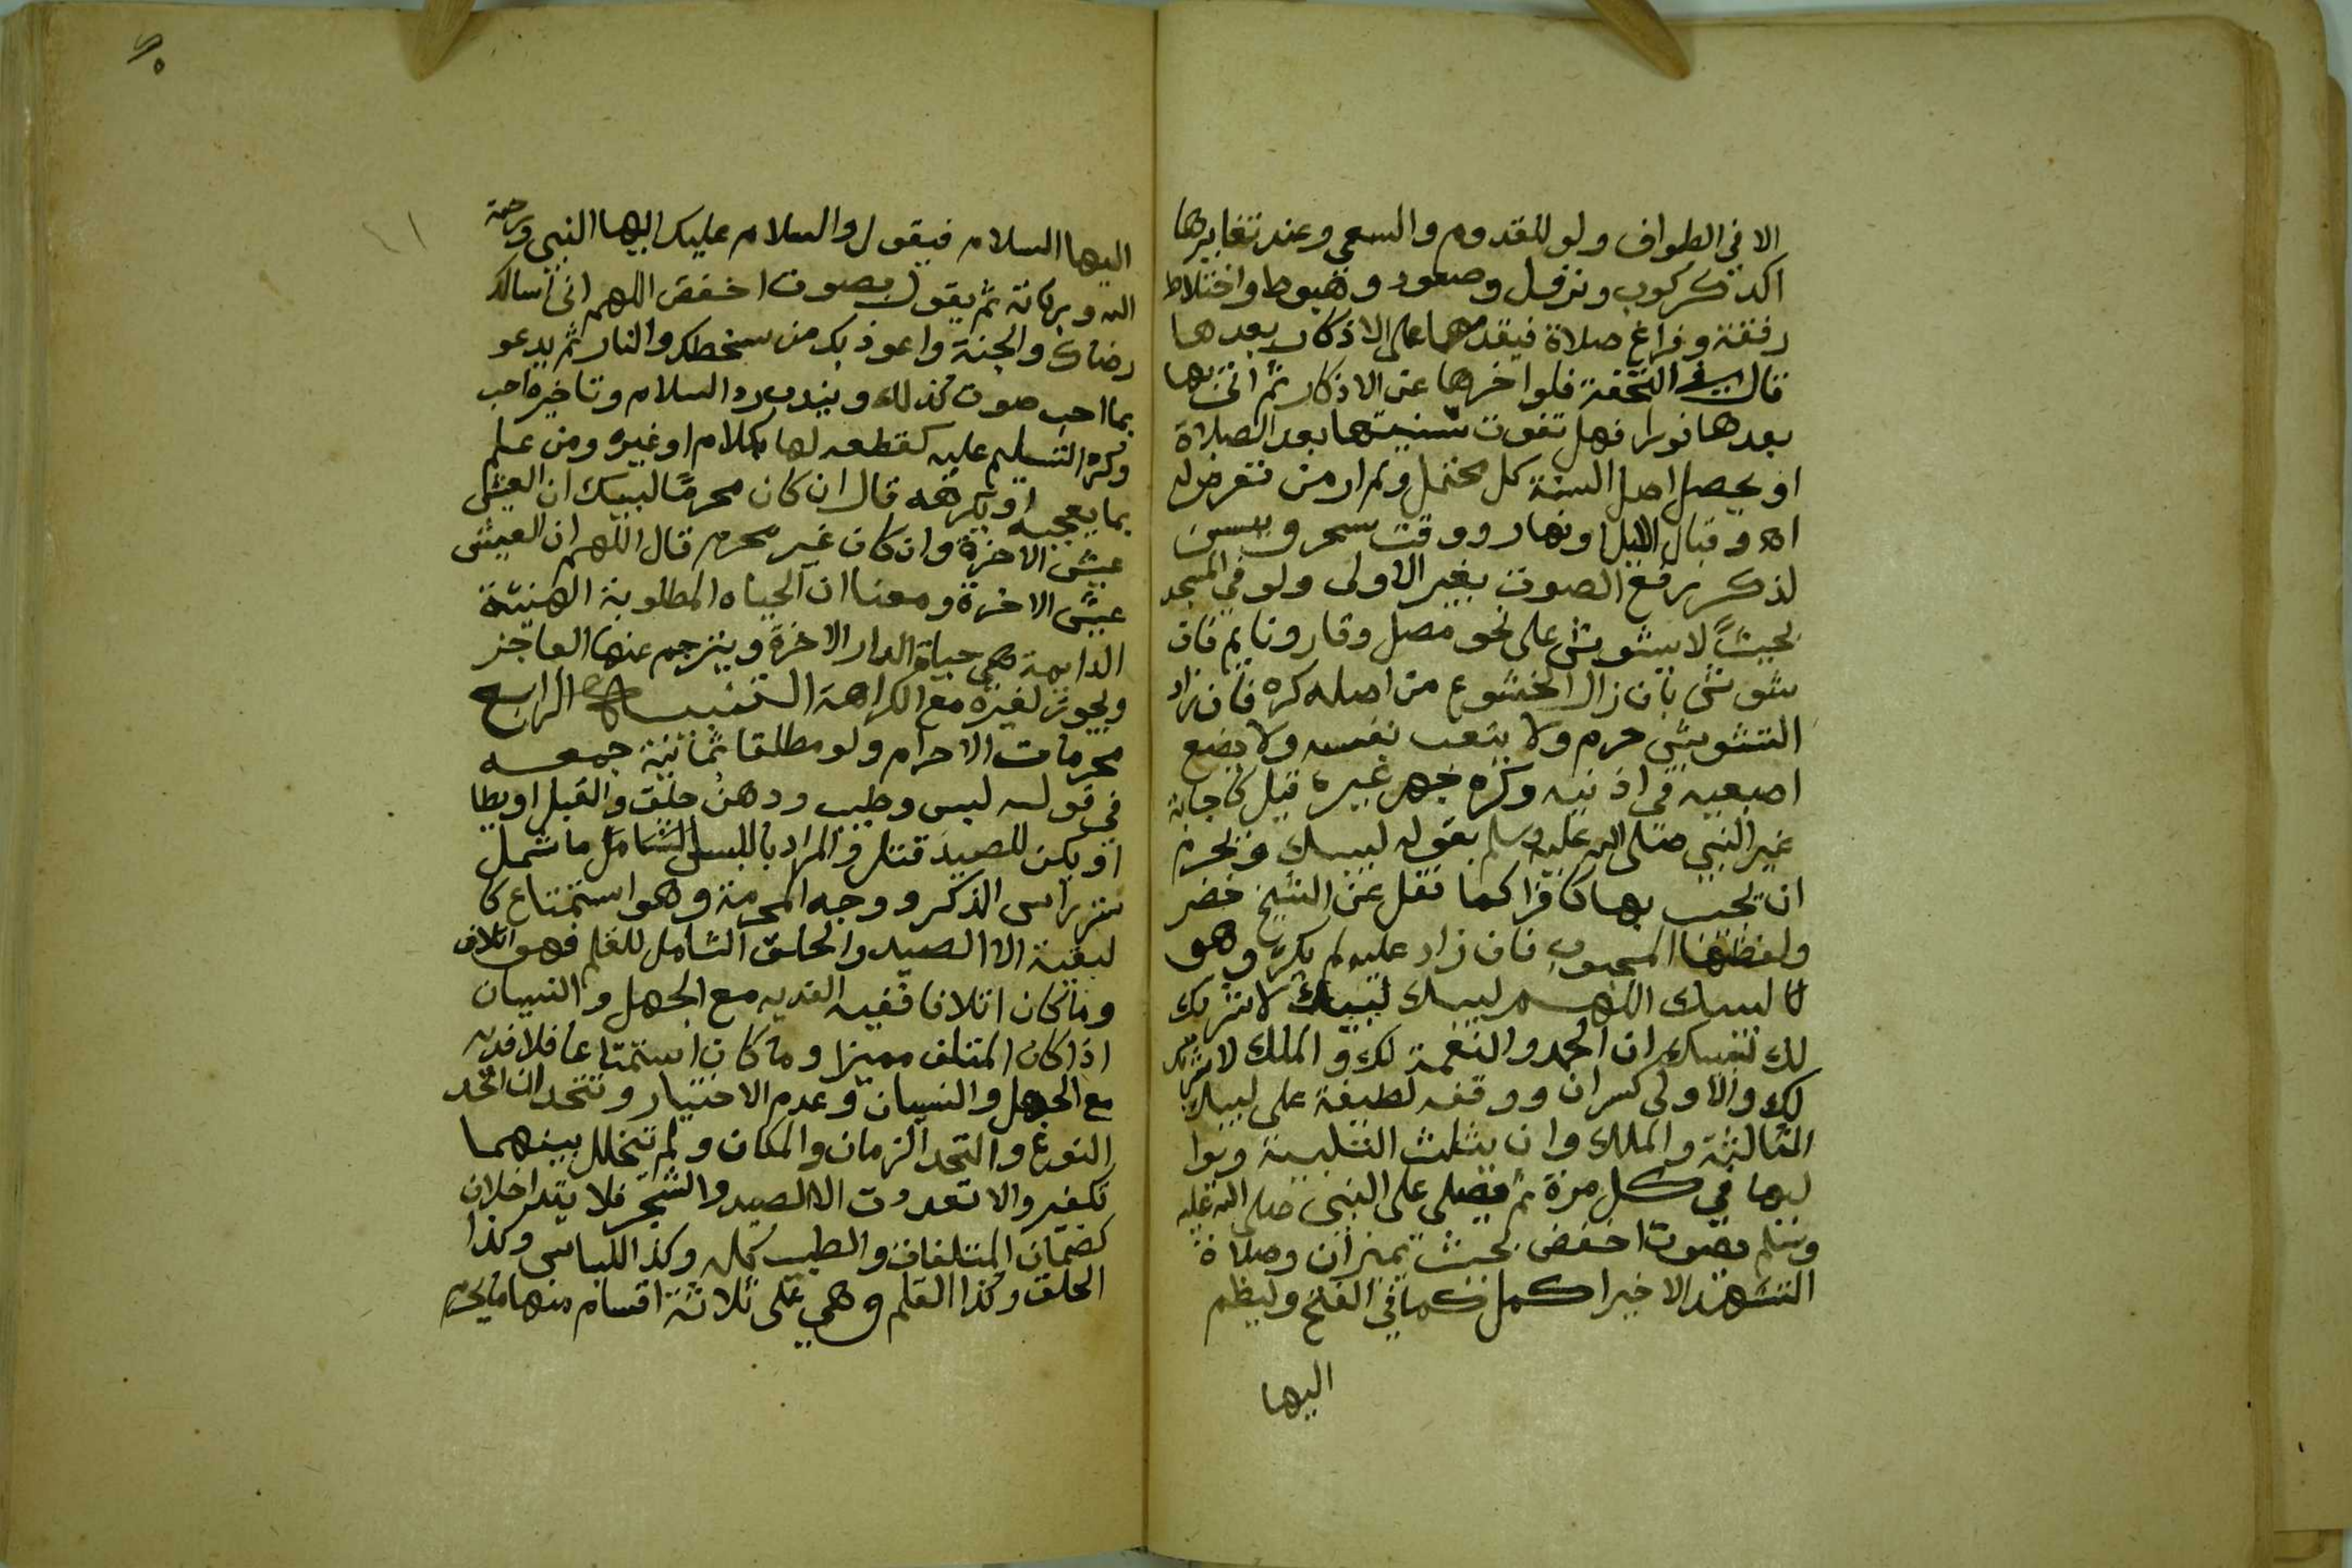 الا في الطواف ولو للقدوم والسعي وعند تغايرها
اكد كركوب ونزول وصعود وهبوط واختلاط
رفقة وفراغ صلاة فيقدمها على الاذكار بعدها
قال في التحفة فلو اخرها عن الاذكار ثم اتى بها
بعدها فورا فهل تفوت سنيتها بعد الصلاة
او يحصل اصل السنة كل محتمل ولم ار من تعرض له
اه وقبال الليل ونهار ووقت سحر ويسن
لذكر رفع الصوت بغير الاولى ولو في المسجد
بحيث لا يشوش على نحو مصل وقار ونايم فان
شوش بان زال الخشوع من اصله كره فان زاد
التشويش حرم ولا يتعب نفسه ولا يضع
اصبعيه في اذنيه وكره جهر غيره قيل كاجابة
غير النبي صلى الله عليه وسلم بقوله لبيك ويحرم
ان يجيب بها كافرا كما نقل عن الشيخ خضر
ولفظها المحبوب فان زاد عليه لم يكره وهو
لبيك اللهم لبيك لبيك لا شريك
لك لبيك ان الحمد والنعمة لك والملك لا شريك
لك والاولى كسر ان ووقفة لطيفة على لبيك
الثالثة والملك وان يثلث التلبية ويوا
ليها في كل مرة ثم يصلي على النبي صلى الله عليه
وسلم بصوت اخفض بحيث يميزان وصلاة
التشهد الاخير اكمل كما في الفتح وليضم
اليها
اليها السلام فيقول والسلام عليك ايها النبي ورحمة
الله وبركاته ثم يقول بصوت اخفض اللهم اني اسالك
رضاك والجنة واعوذ بك من سخطك والنار ثم يدعو
بما احب صوت كذلك ويندب رد السلام وتاخيره احب
وكره التسليم عليه كقطعه لها بكلام او غيره ومن علم
بما يعجبه او يكرهه قال ان كان محرما لبيك ان العيش
عيش الاخرة وان كان غير محرم قال اللهم ان العيش
عيش الاخرة ومعنا ان الحياه المطلوبة الهنيئة
الدايمة هي حياة الدار الاخرة ويترجم عنها العاجز
ويجوز لغيره مع الكراهة التنبيه الرابع
محرمات الاحرام ولو مطلقا ثمانية جمعه
في قوله لبس وطيب ودهن حلق والقبل او يطا
او يكن للصيد قتل والمراد باللبس الشامل ما شمل
ستر راس الذكر ووجه المحرمة وهو استمتاع كا
لبقية الا الصيد والحلق الشامل للقلم فهو اتلاف
وما كان اتلافا ففيه الفديه مع الجهل والنسيان
اذا كان المتلف مميزا وما كان استمتاعا فلا فديه
مع الجهل والنسيان وعدم الاختيار وتتحد ان اتحد
النوع واتحد الزمان والمكان ولم يتخلل بينهما
تكفير والا تعددت الا الصيد والشجر فلا يتداخلان
كضمان المتلفات والطيب كله وكذا اللباس وكذا
الحلق وكذا القلم وهي على ثلاثة اقسام منها ما يحرم